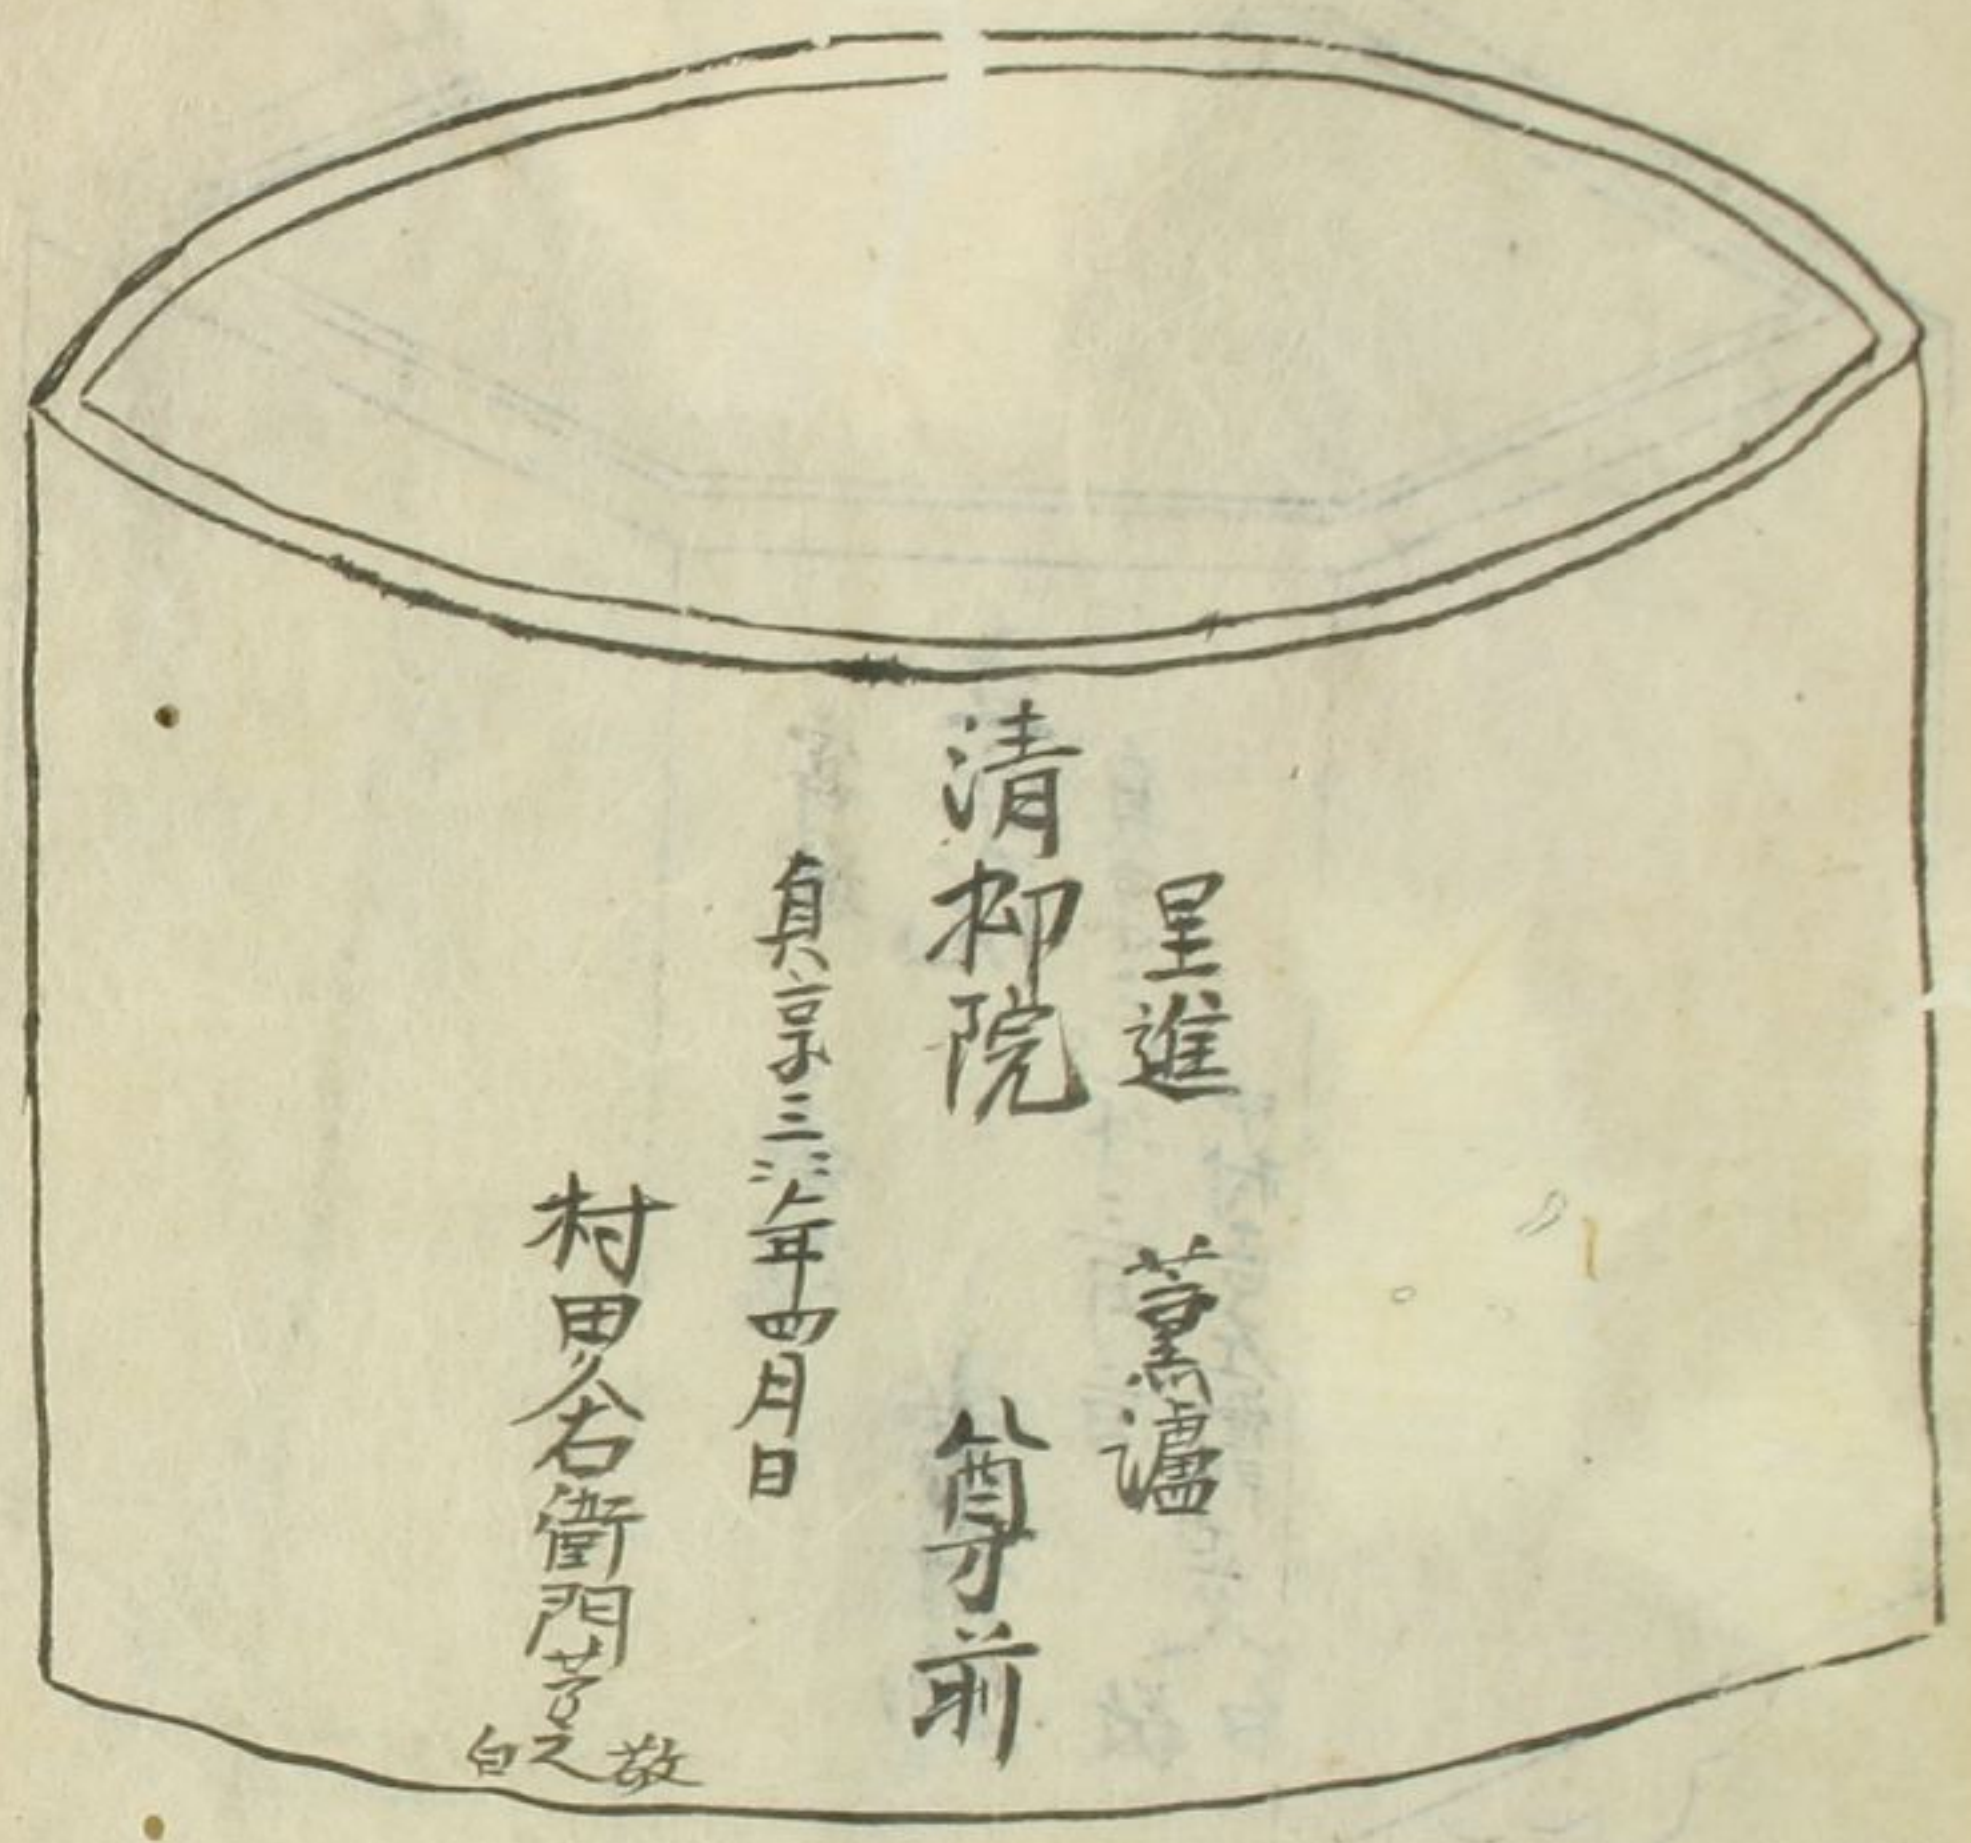 呈進　薫瀘
清柳院　尊前
貞享三年四月日
村田久右衛門
之
敬白